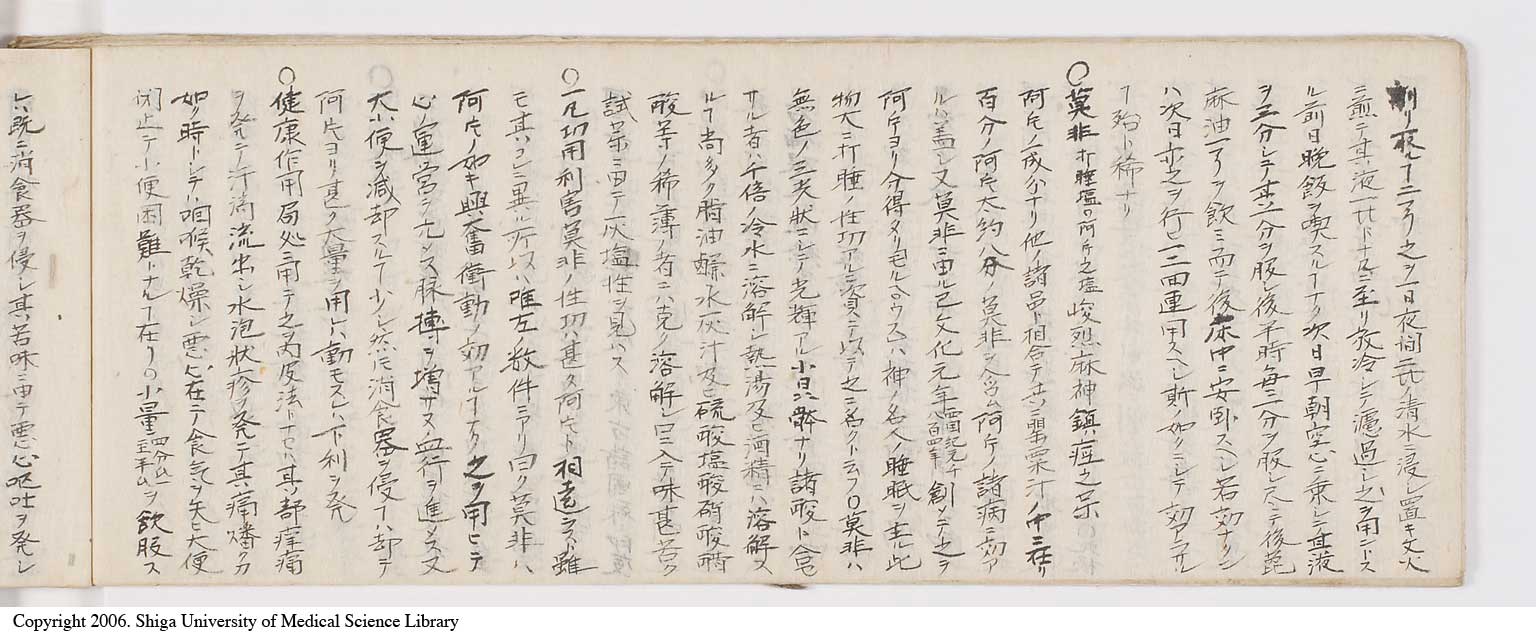 削リ取ルヿ二ツ之ヲ一日夜間二氏ノ清水ニ浸シ置キ文火
ニ煎テ其液一氏トナルニ至リ放冷シテ濾過シ之ヲ用ントス
ル前日晩飯ヲ喫スルヿナク次日早朝空心ニ乗シテ其液
ヲ三分シテ其一分ヲ服シ後半時毎ニ一分ヲ服シ尽シテ後蓖
麻油ヲ飲ミ而テ後床中ニ安臥スヘシ若効ナクン
ハ次日亦之ヲ行ヒ一二回連用スヘシ斯ノ如クニシテ効ナル
ヿ殆ト稀ナリ
○莫非 打睡塩 阿片之塩 峻烈麻神鎮痙之品
阿片ノ一成分ナリ他ノ諸品ト相合テ共ニ罌粟汁ノ中ニ在リ
百分ノ阿片大約八分ノ莫非ヲ含ム阿片ノ諸病ニ効ア
ルハ蓋シ又莫非ニ由ル已文化元年 西国紀元千八百四年 創シテ之ヲ
阿片ヨリ分得タリモルペウスハ神ノ名人ノ睡眠ヲ主ル此
物大ニ打睡ノ性効アルニ資テ以テ之ニ名クト云フ○莫非ハ
無色ノ三尖状ニシテ光輝アル小晶骸ナリ諸酸ト合セ
サル者ハ千倍ノ冷水ニ溶解シ熱湯及ヒ酒精ニハ溶解ス
ルヿ尚多ク脂油水灰汁及ヒ硫酸塩酸硝酸醋
酸等ノ稀薄ノ者ニハ克ク溶解シ口ニ入テ味甚苦ク
試薬ニ由テ灰塩性ヲ見ハス
○一凡功用利害莫非ノ性功ハ甚タ阿片ト相遠ラスト雖
モ其ハラニ異ル所以ハ唯左ノ数件ニアリ曰ク莫非ハ
阿片ノ如キ興奮衝動ノ効アルヿナク之ヲ用ヒテ
心ノ運営ヲ亢シス脉搏ヲ増サス血行ヲ進シス又
大小便ヲ減却スルヿ少シ然ㇳモ消食器ヲ侵スヿハ却テ
阿片ヨリ甚ク大量ヲ用レハ動モスレハ下利ヲ発
○健康作用局処ニ用テ之ヲ内皮法トナセハ其ノ部痒痛
ヲ発シテ汗滴流出シ水泡状疹ヲ発テ其痛燔クカ
如リ時トシテハ咽喉乾燥シ悪心在テ食気ヲ失ヒ大便
閉止シテ小便困難トナルヿ在リ○小量 四分ムヨリ至半ム ヲ飲服ス
レハ既ニ消食器ヲ侵シ其苦味ニ由テ悪心呕吐ヲ発シ
Copyright 2006. Shiga University of Medical Science Library